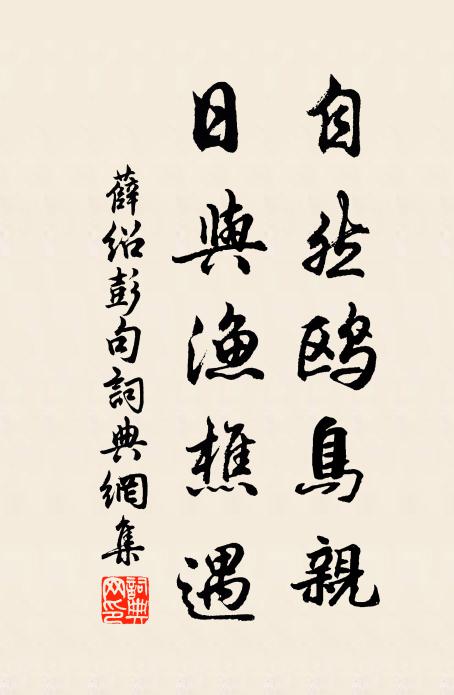 自然鷗鳥親
日與漁樵遇
薛紹彭句詞典網集
詞典
网印